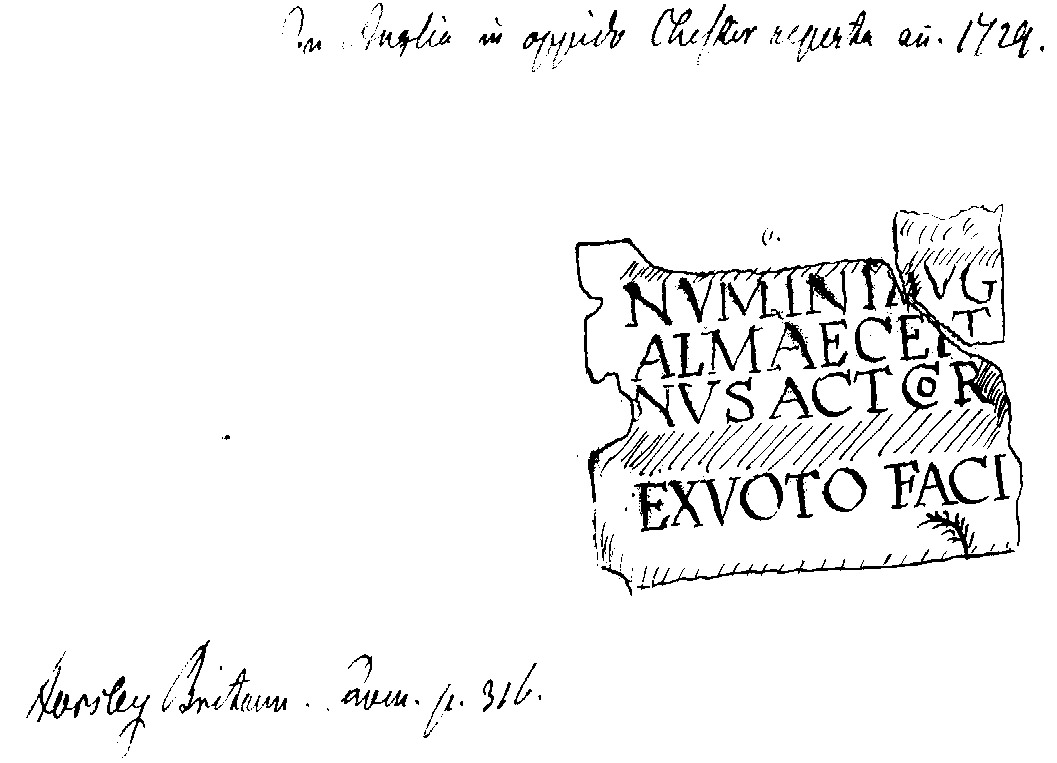 In Anglia in oppido Chester reperta añ. 1729.
NVMINI AVG
ALMAE CEN T
NVS ACTOR
EX VOTO FACI
Horsley Britann. Rom. p. 316.